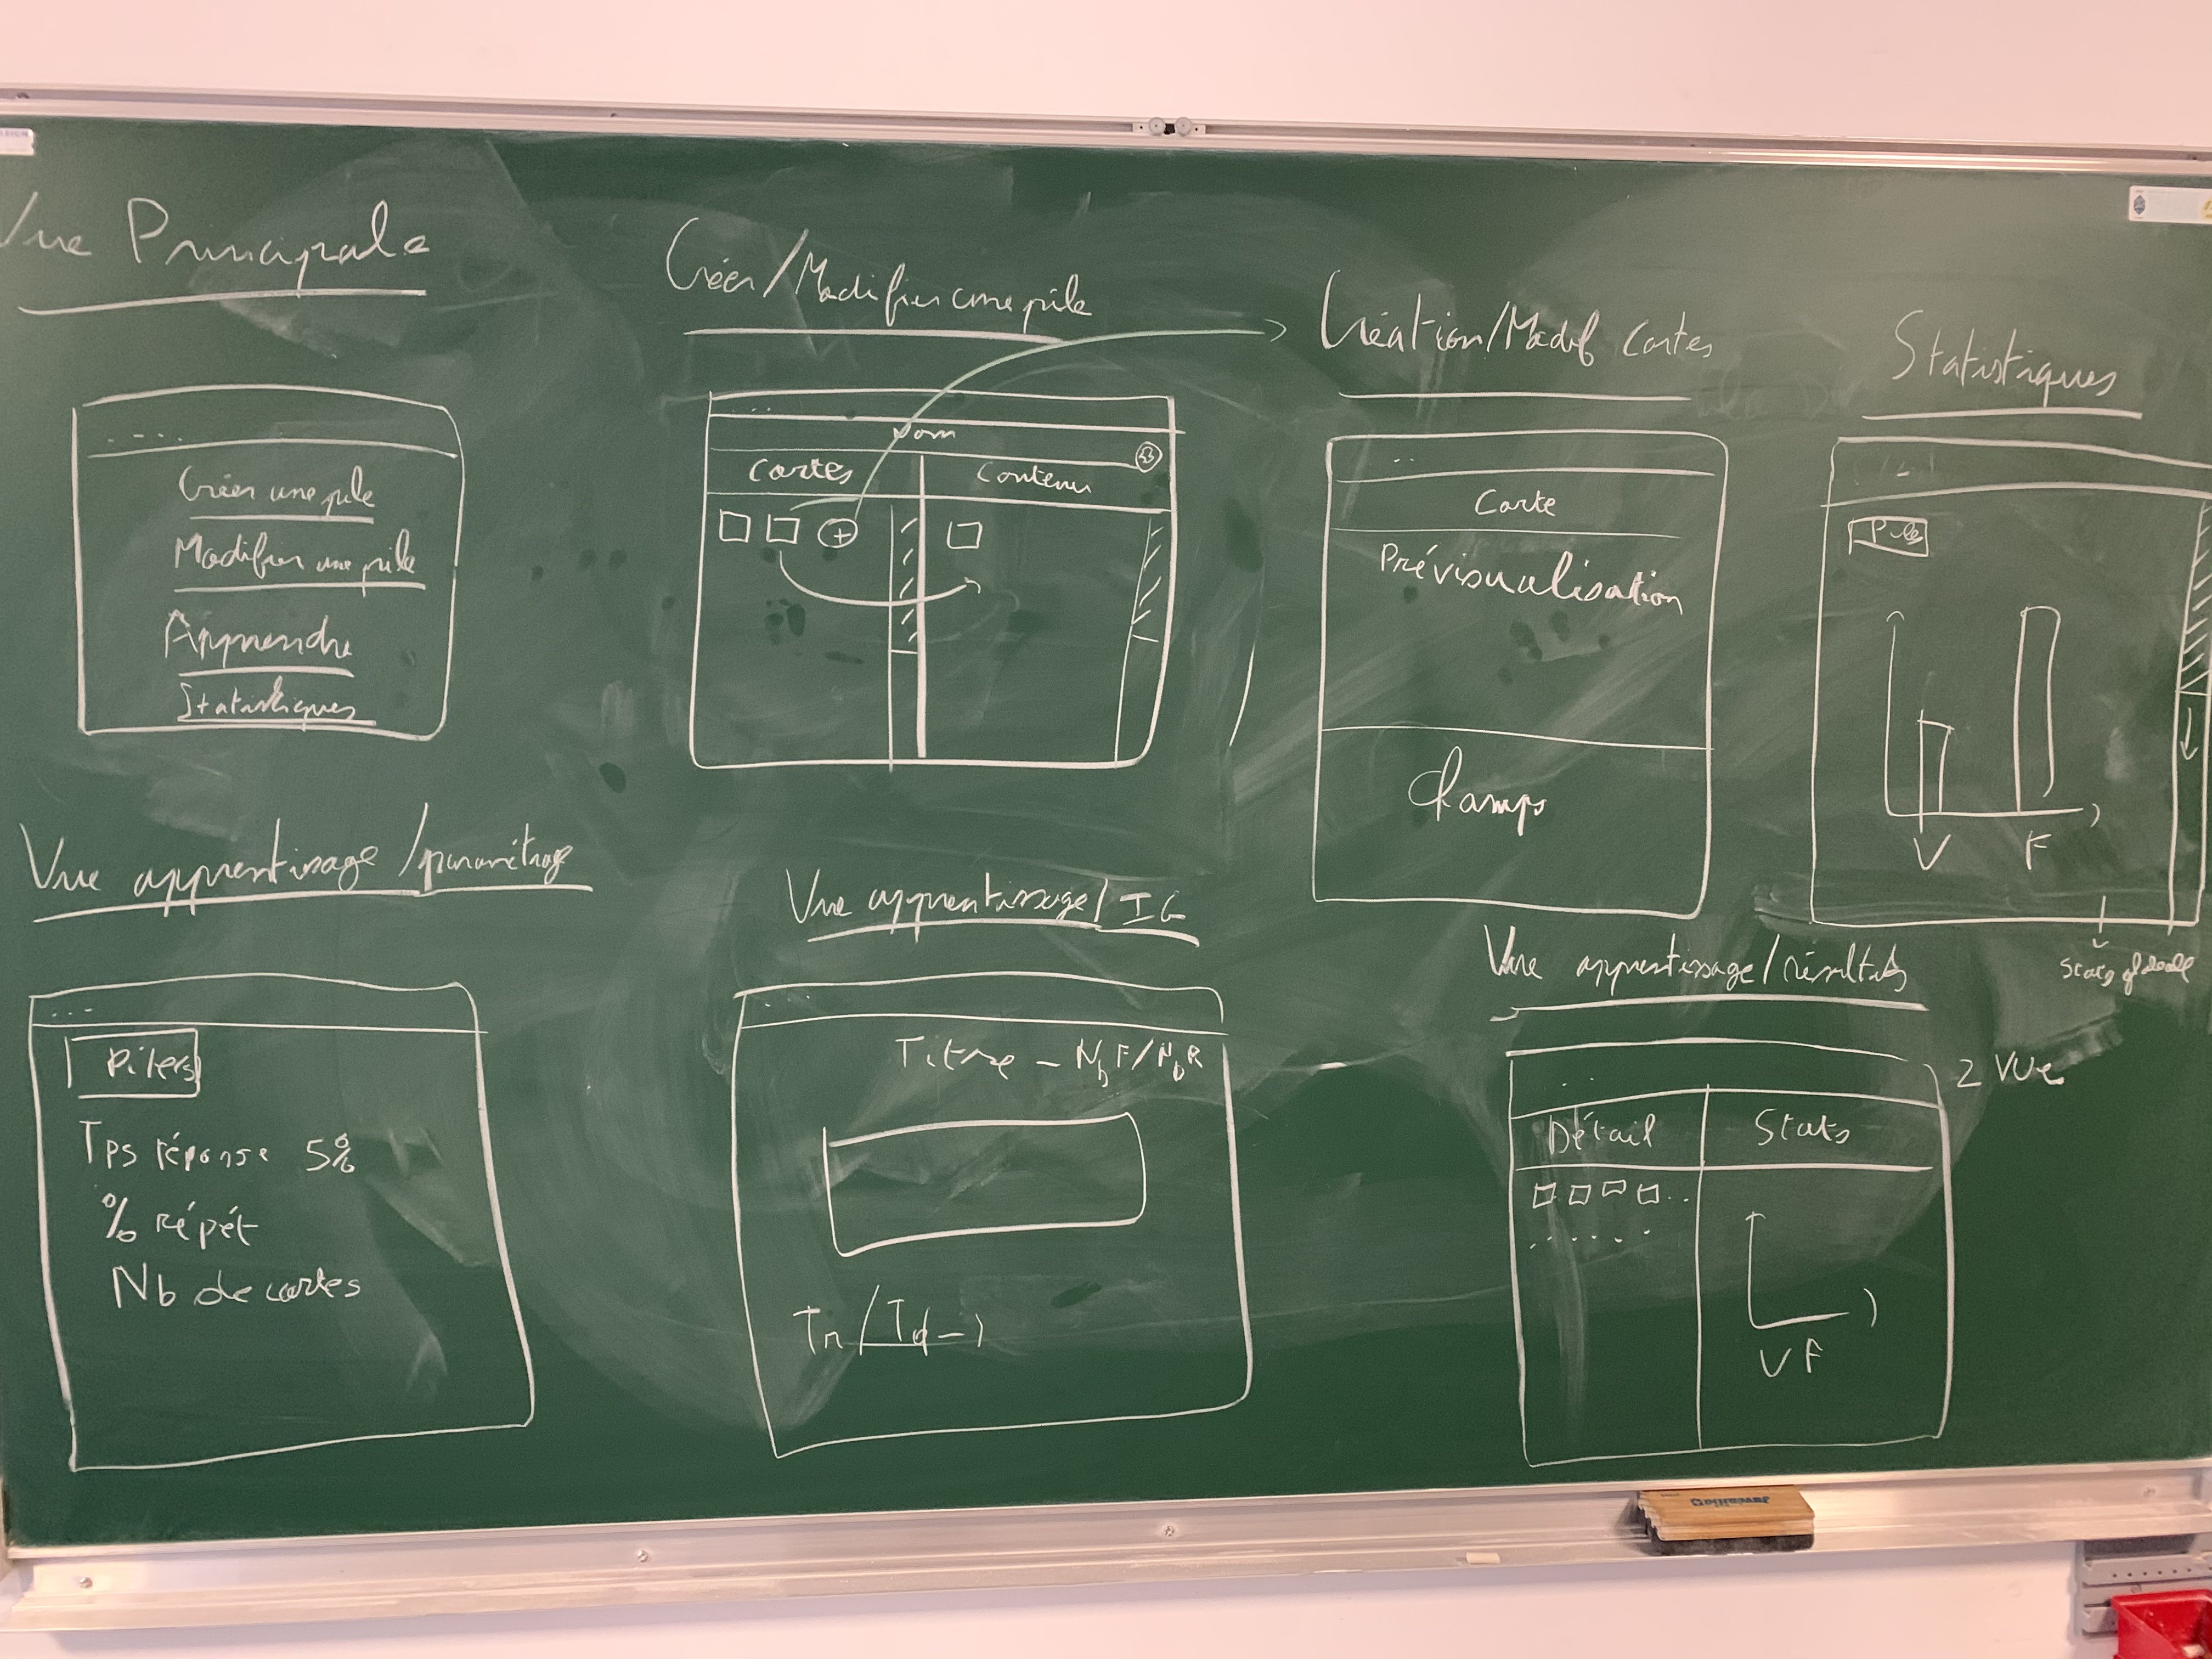 Vue Principale
Créer une pile
Modifier une pile
Apprendre
Statistiques
Créer/Modifier une pile
Nom
Cartes
Contenu
+
Création/Modif Cartes
Carte
Prévisualisation
Champs
Statistiques
Pile
V F
Vue apprentissage/paramétrage
Piles
Tps réponse 5%
% répét
Nb de cartes
Vue apprentissage/IG
Titre - Nb F/Nb R
Vue apprentissage/résultats
2 vue
Détail
Stats
V F